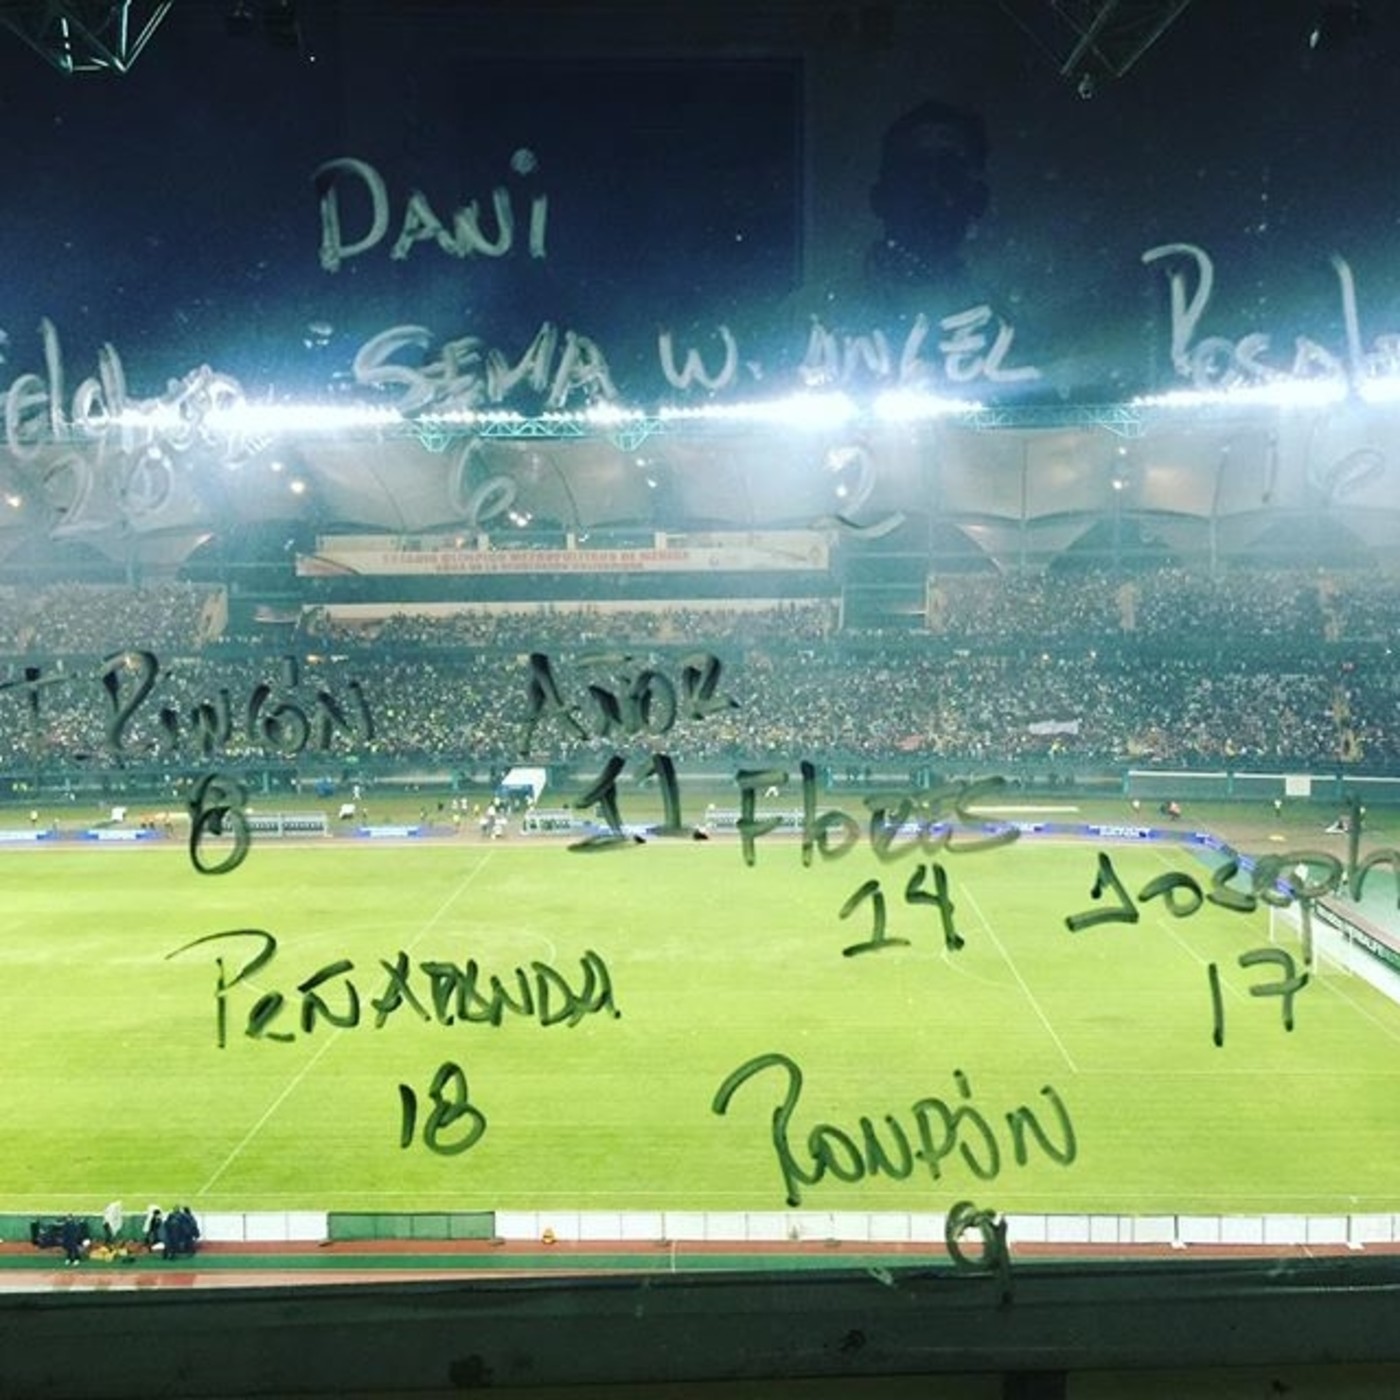 DANI
SEMA W. ANGEL Rosales
20 6 2 16
T. Rincón AÑOR
8 11 Flores
14 Joseph
PeÑARANDA 17
18 RONDÓN
9
ESTADIO OLIMPICO METROPOLITANO DE MERIDA